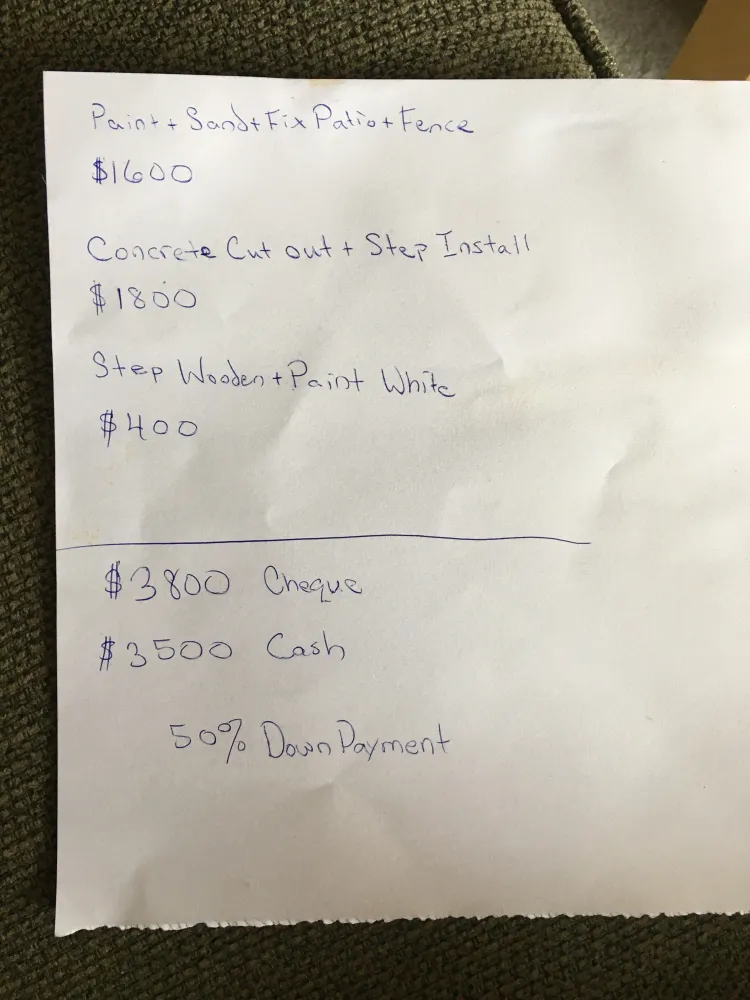 Paint + Sand + Fix Patio + Fence
$1600
Concrete Cut out + Step Install
$1800
Step Wooden + Paint White
$400
$3800 Cheque
$3500 Cash
50% Down Payment